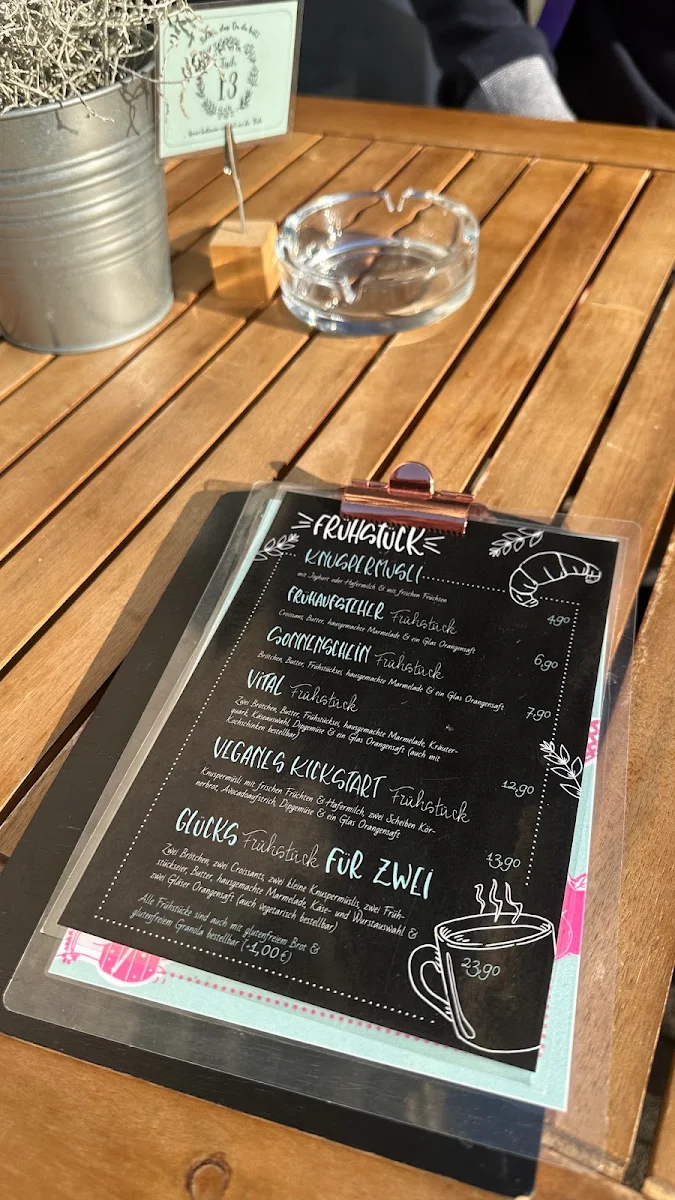 das Du da bist!
Tisch
13
FRÜHSTÜCK
KNUSPERMÜSLI
mit Joghurt oder Hafermilch & mit frischen Früchten
4,90
FRÜHAUFSTEHER Frühstück
Croissant, Butter, hausgemachter Marmelade & ein Glas Orangensaft
6,90
SONNENSCHEIN Frühstück
Brötchen, Butter, Frühstücksei, hausgemachte Marmelade & ein Glas Orangensaft
7,90
VITAL Frühstück
Zwei Brötchen, Butter, Frühstücksei, hausgemachte Marmelade, Kräuter-
quark, Käseauswahl, Dipgemüse & ein Glas Orangensaft (auch mit
Kochschinken bestellbar)
12,90
VEGANES KICKSTART Frühstück
Knuspermüsli mit frischen Früchten & Hafermilch, zwei Scheiben Kör-
nerbrot, Avocadoaufstrich, Dipgemüse & ein Glas Orangensaft
13,90
GLÜCKS Frühstück FÜR ZWEI
Zwei Brötchen, zwei Croissants, zwei kleine Knuspermüslis, zwei Früh-
stückseier, Butter, hausgemachte Marmelade, Käse- und Wurstauswahl &
zwei Gläser Orangensaft (auch vegetarisch bestellbar)
23,90
Alle Frühstücke sind auch mit glutenfreiem Brot &
glutenfreiem Granola bestellbar (+1,00€)